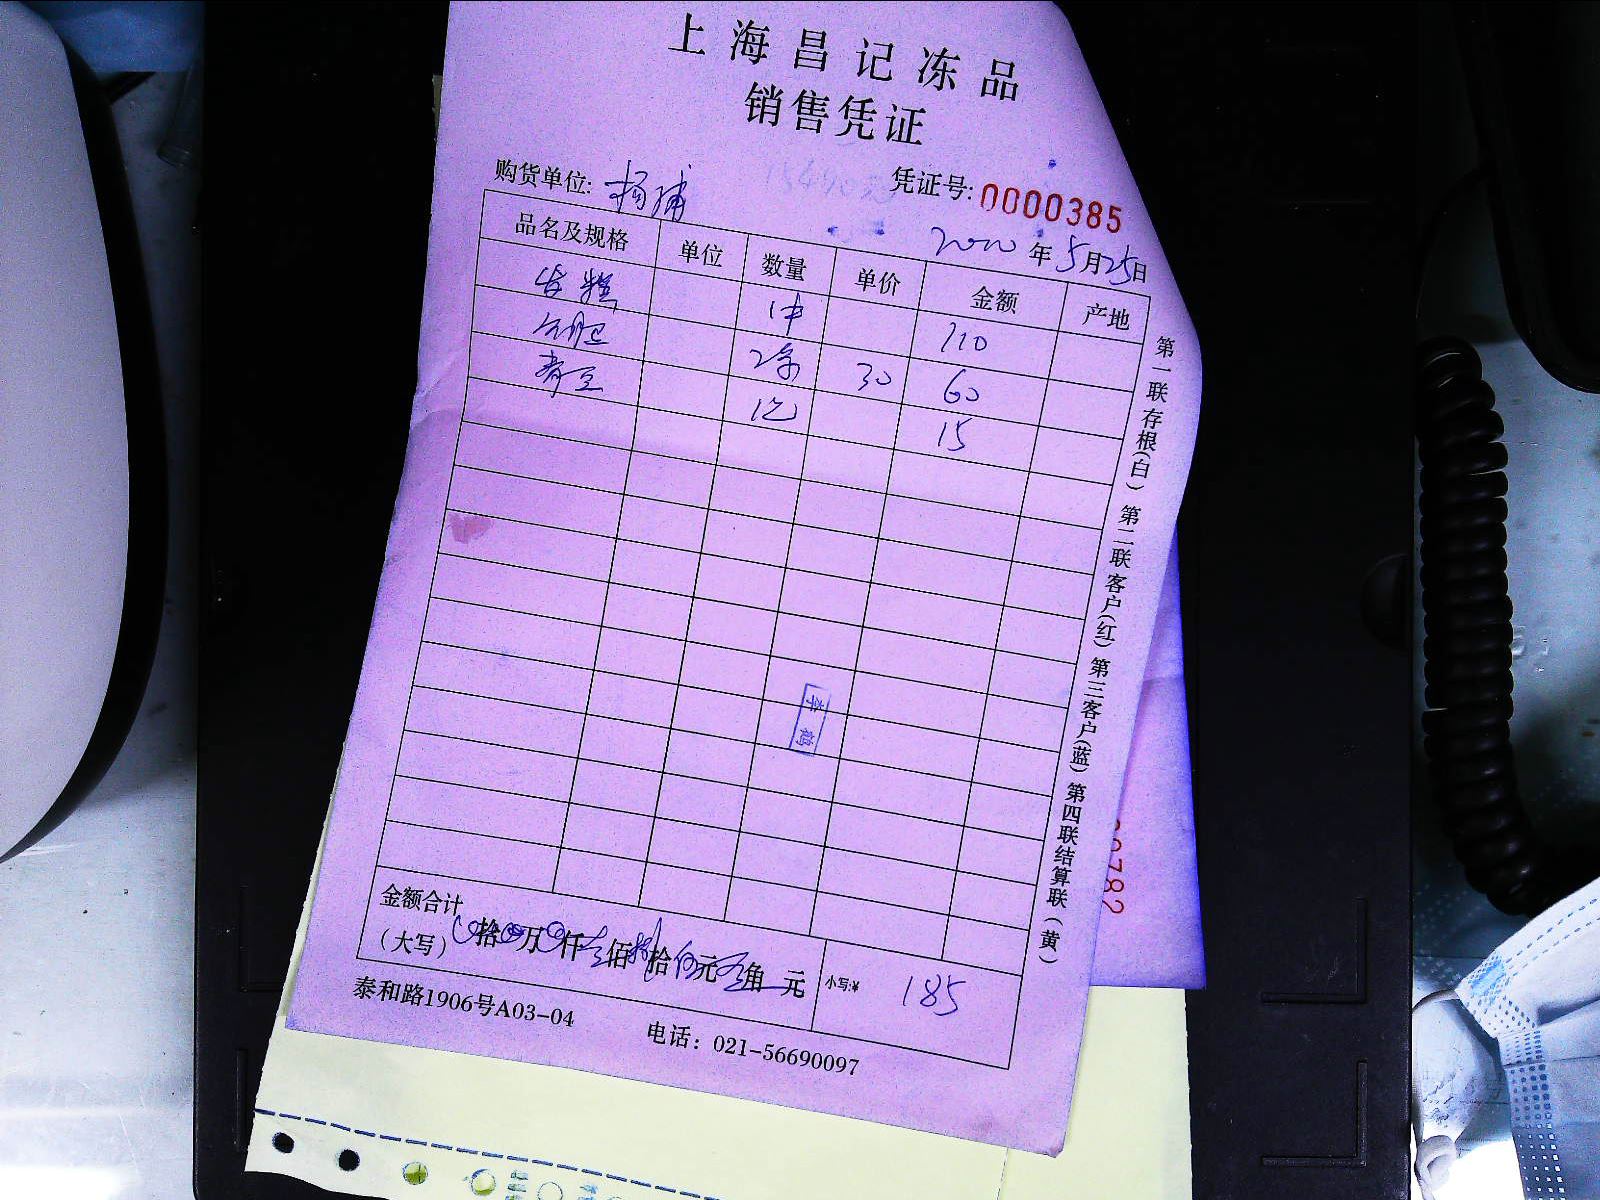 上海昌记冻品
销售凭证
购货单位: 杨浦
凭证号: 0000385
2020年5月25日
品名及规格 单位 数量 单价 金额 产地
1件 110
2条 30 60
青豆 1包 15
第一联存根(白) 第二联客户(红) 第三客户(蓝) 第四联结算联(黄)
金额合计
(大写) 拾 万 仟 佰 拾 元 角 元 小写:¥ 185
泰和路1906号A03-04 电话: 021-56690097